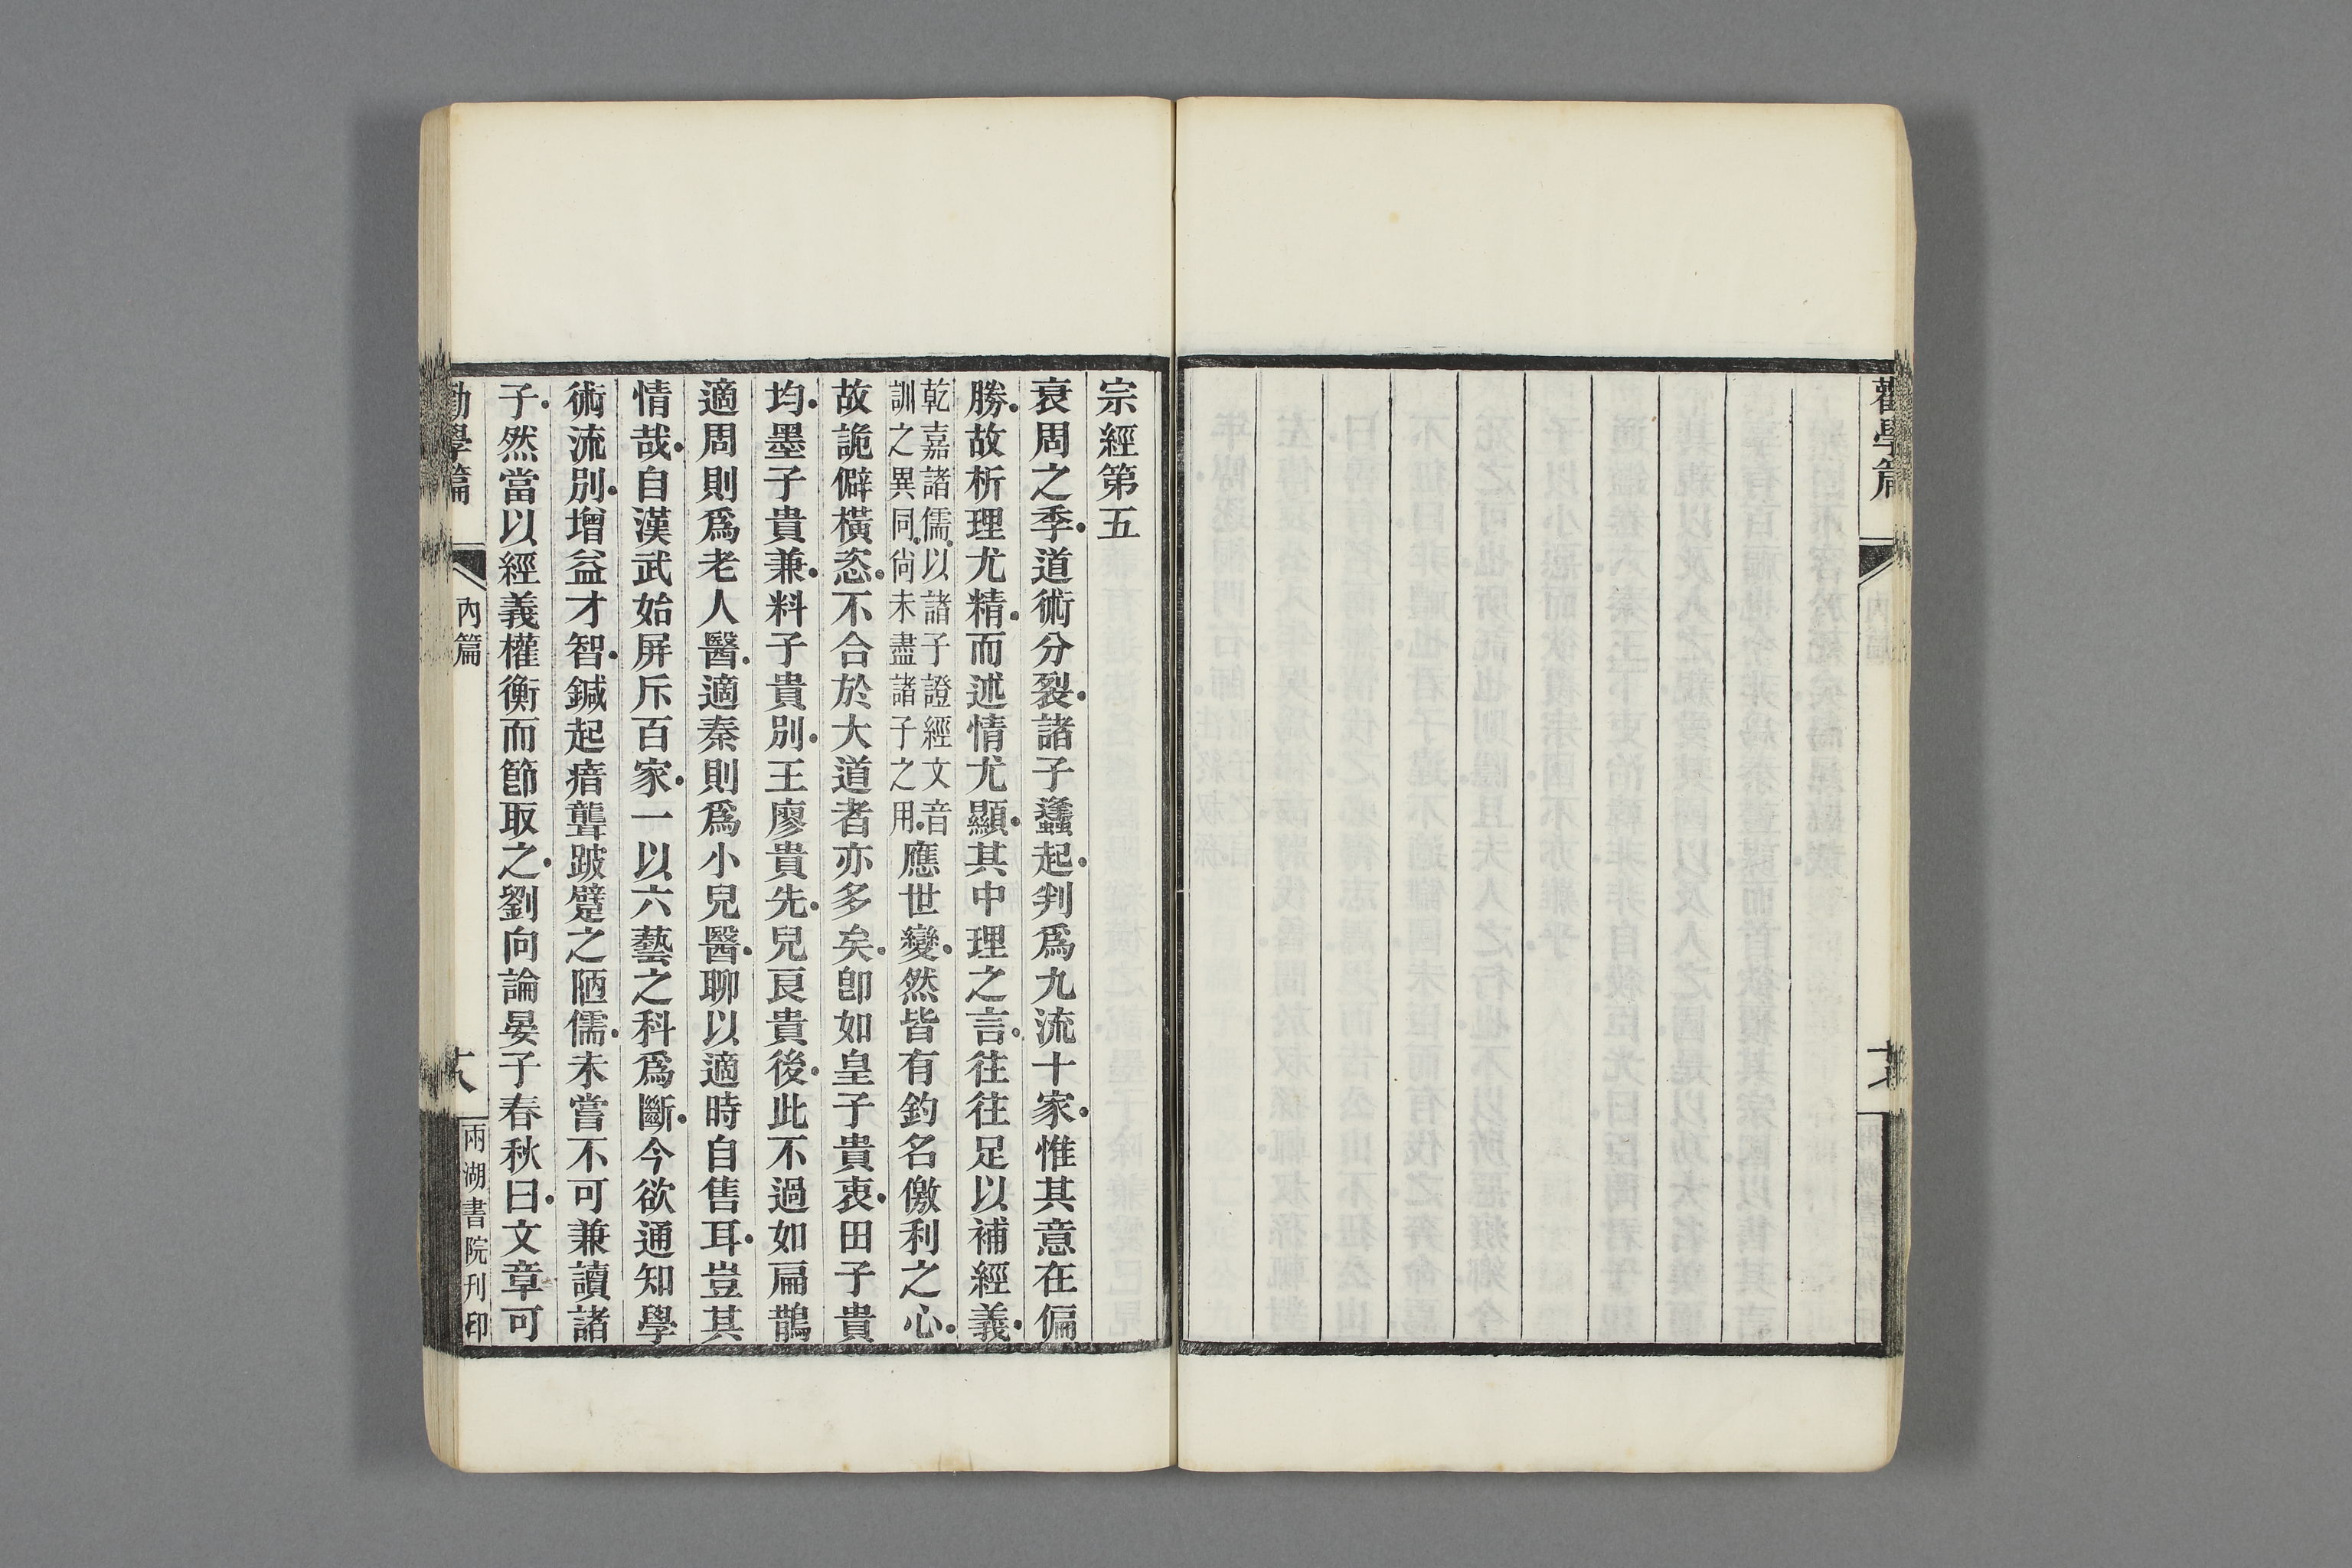 勸學篇
宗經第五
衰周之季．道術分裂．諸子蠭起．判爲九流十家．惟其意在偏
勝．故析理尤精．而述情尤顯．其中理之言．往往足以補經義．
乾嘉諸儒．以諸子證經文音
訓之異同．尙未盡諸子之用．
應世變．然皆有釣名儌利之心．
故詭僻橫恣．不合於大道者亦多矣．卽如皇子貴衷．田子貴
均．墨子貴兼．料子貴別．王廖貴先．兒良貴後．此不過如扁鵲
適周則爲老人醫．適秦則爲小兒醫．聊以適時自售耳．豈其
情哉．自漢武始屏斥百家．一以六藝之科爲斷．今欲通知學
術流別．增益才智．鍼起瘖聾跛躄之陋儒．未嘗不可兼讀諸
子．然當以經義權衡而節取之．劉向論晏子春秋曰．文章可
勸學篇
內篇
十八
兩湖書院刊印